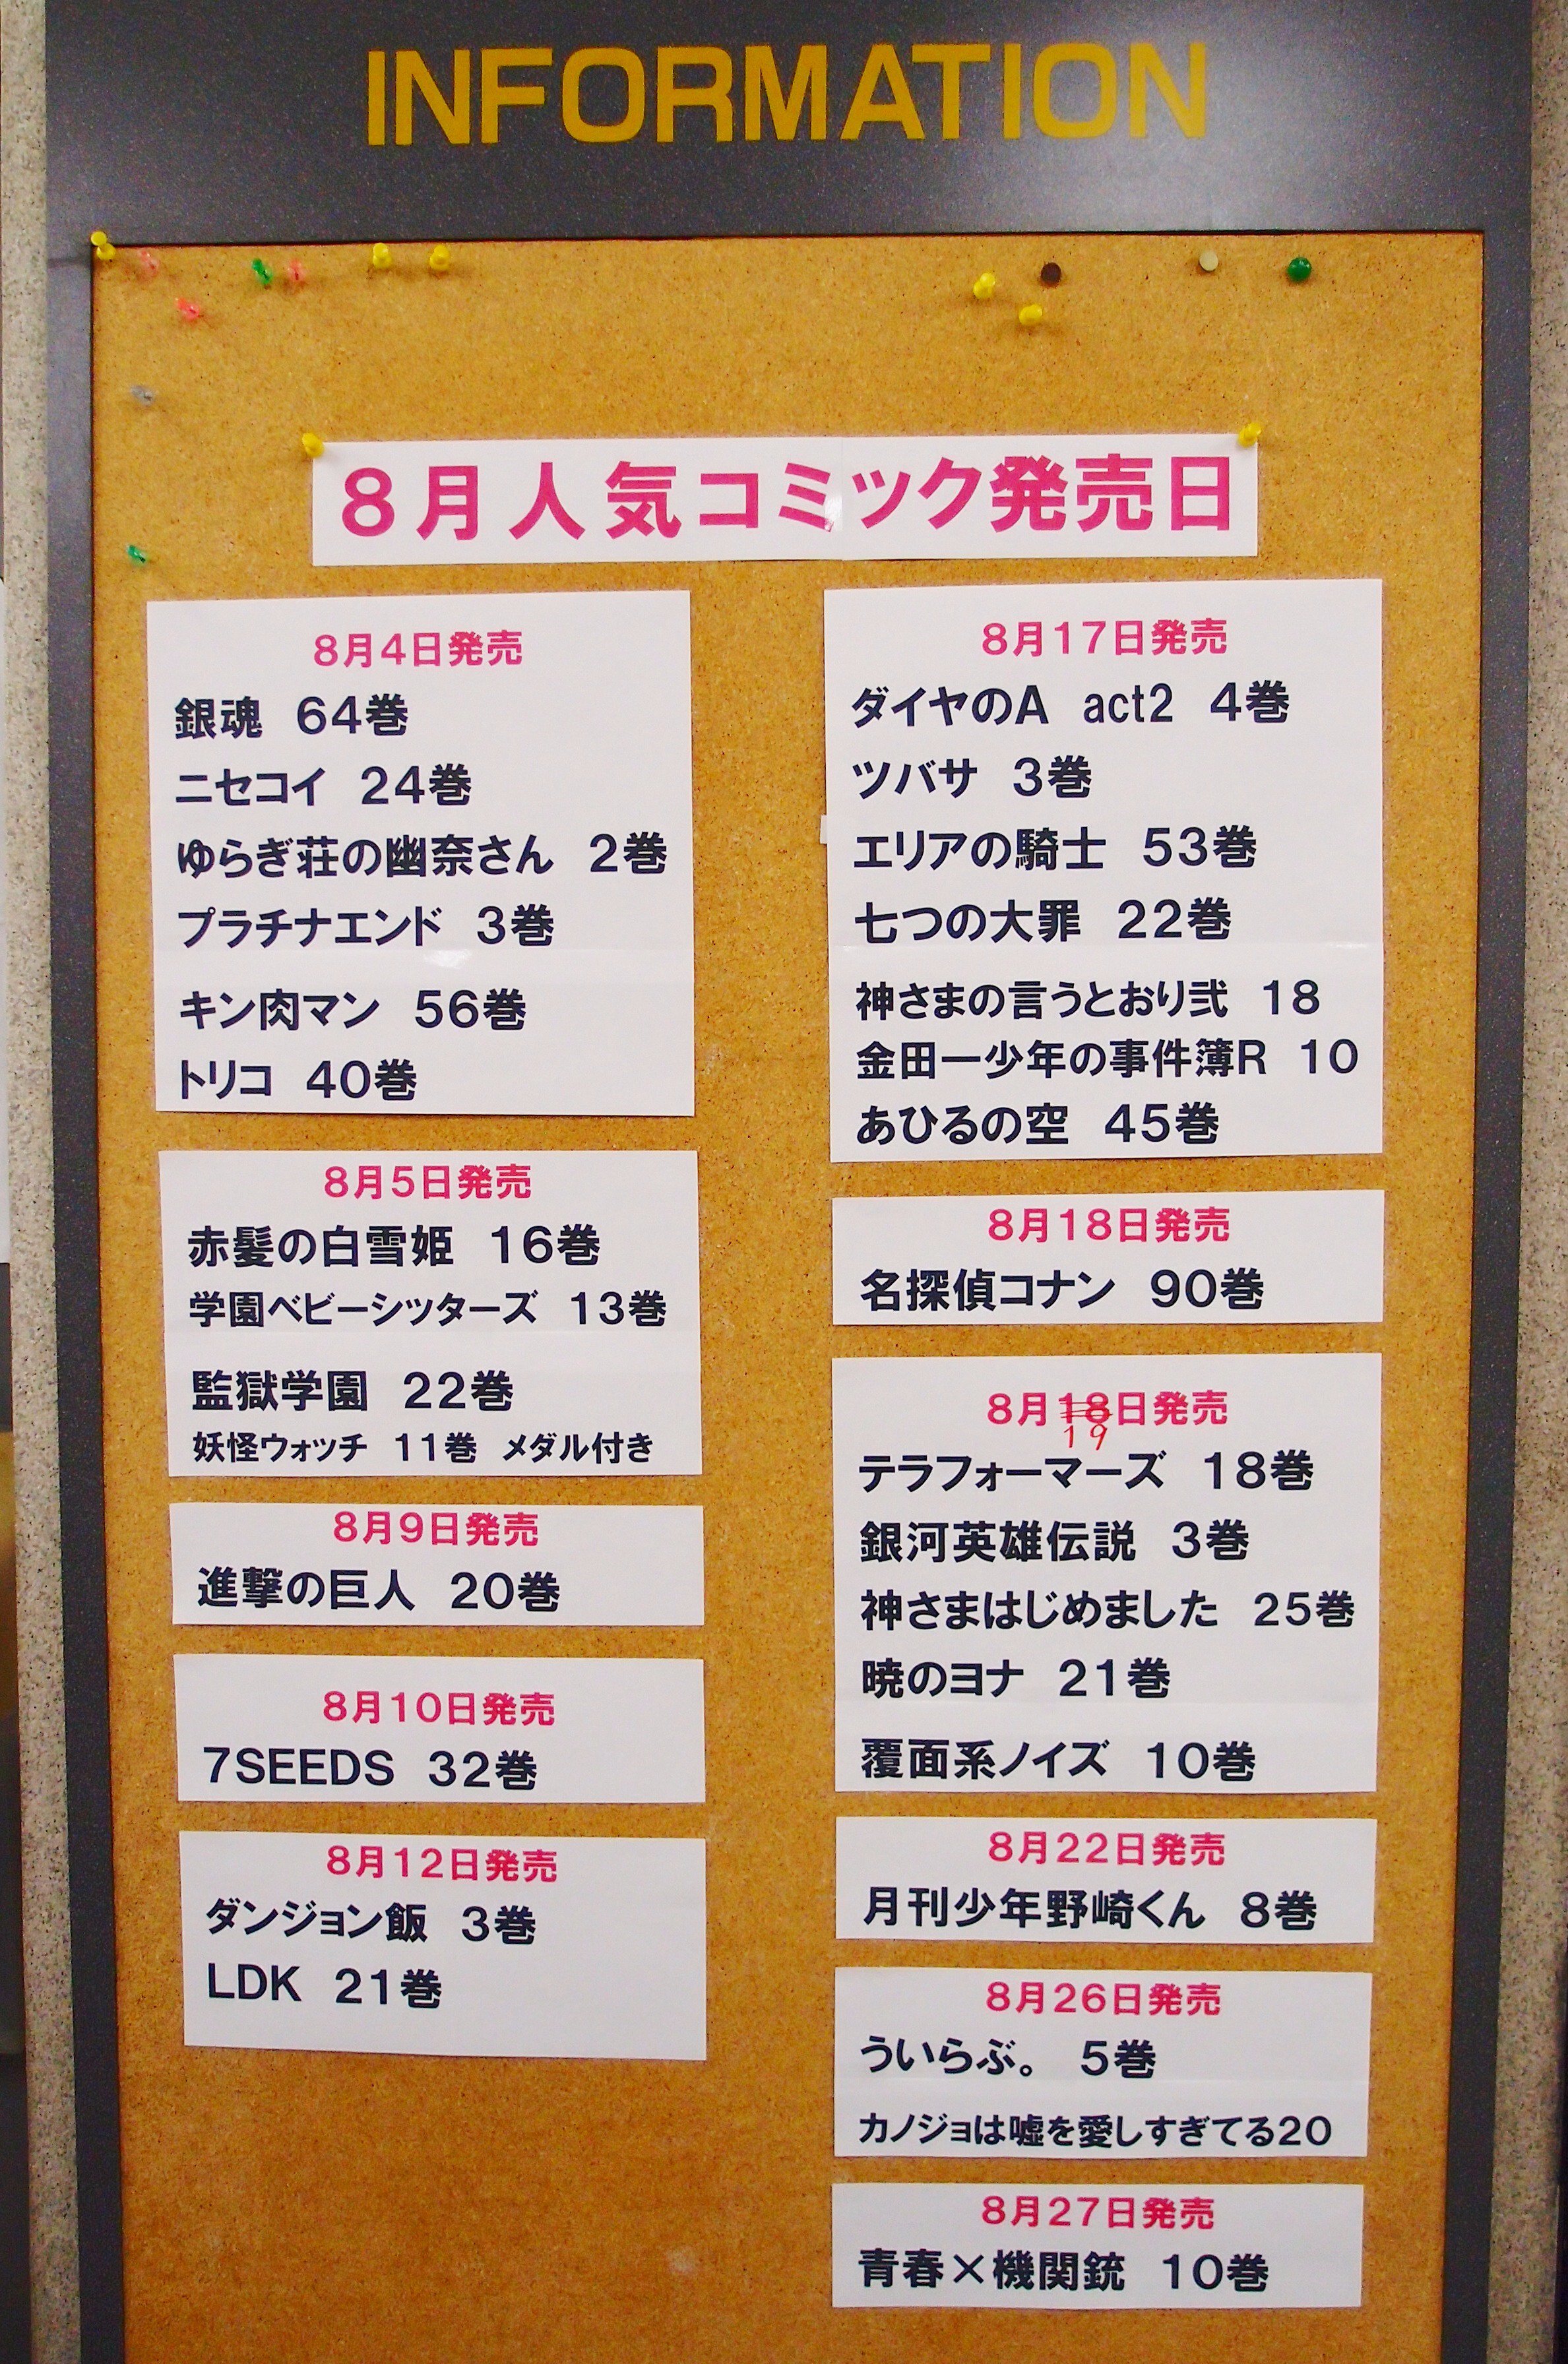 INFORMATION
8月人気コミック発売日
8月4日発売
銀魂 64巻
ニセコイ 24巻
ゆらぎ荘の幽奈さん 2巻
プラチナエンド 3巻
キン肉マン 56巻
トリコ 40巻
8月5日発売
赤髪の白雪姫 16巻
学園ベビーシッターズ 13巻
監獄学園 22巻
妖怪ウォッチ 11巻 メダル付き
8月9日発売
進撃の巨人 20巻
8月10日発売
7SEEDS 32巻
8月12日発売
ダンジョン飯 3巻
LDK 21巻
8月17日発売
ダイヤのA act2 4巻
ツバサ 3巻
エリアの騎士 53巻
七つの大罪 22巻
神さまの言うとおり弐 18
金田一少年の事件簿R 10
あひるの空 45巻
8月18日発売
名探偵コナン 90巻
8月18日発売
19
テラフォーマーズ 18巻
銀河英雄伝説 3巻
神さまはじめました 25巻
暁のヨナ 21巻
覆面系ノイズ 10巻
8月22日発売
月刊少年野崎くん 8巻
8月26日発売
ういらぶ。 5巻
カノジョは嘘を愛しすぎてる20
8月27日発売
青春×機関銃 10巻